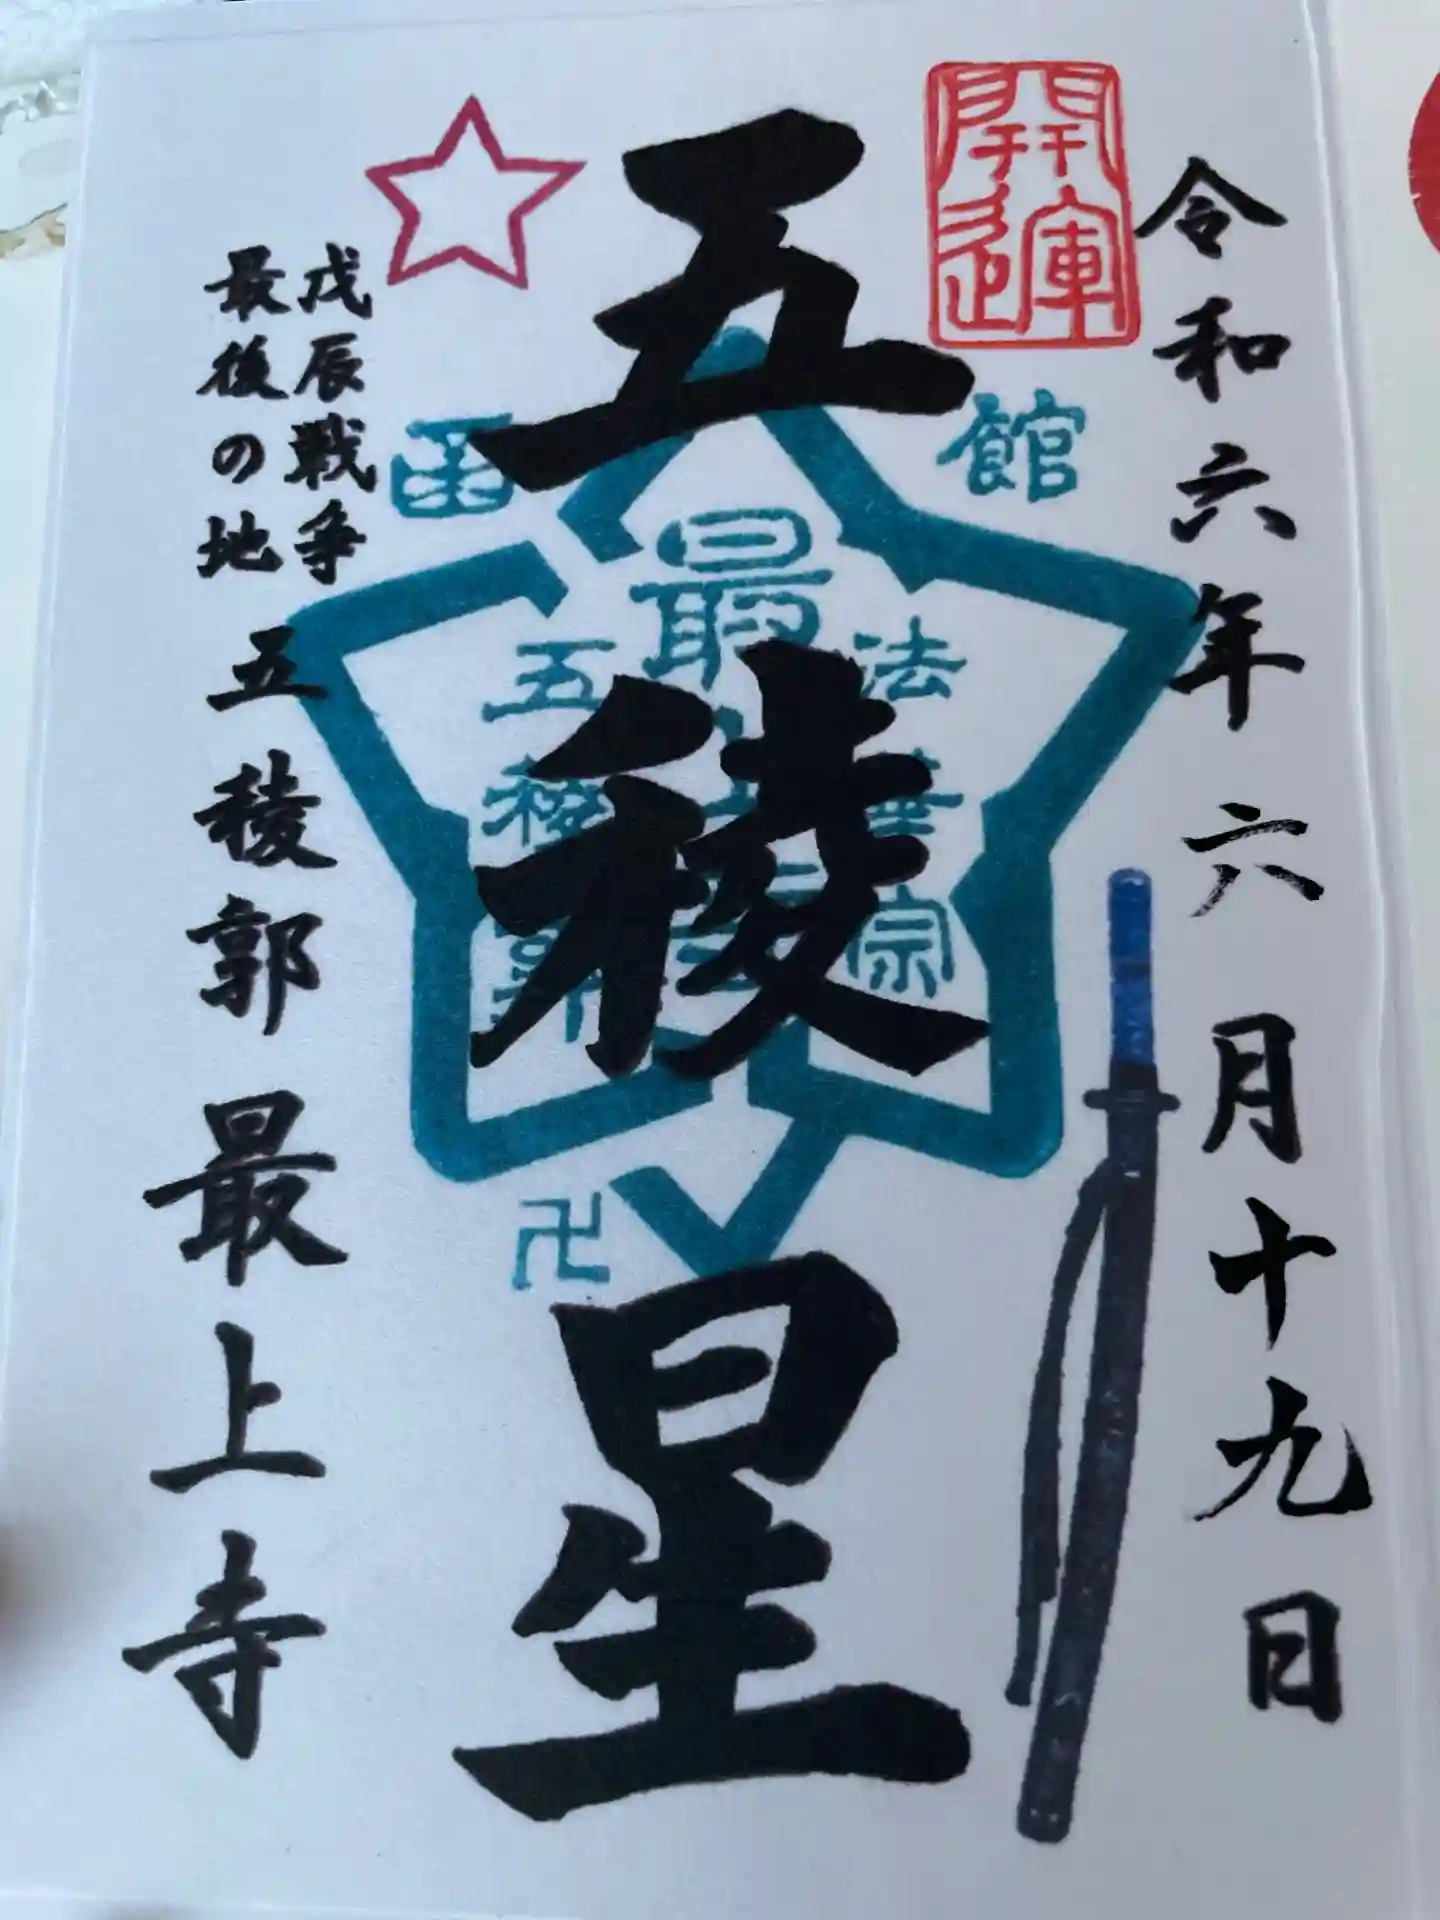 令和六年六月十九日
開運
五稜星
函館
法華宗
最上寺
五稜郭
卍
戊辰戦争
最後の地
五稜郭 最上寺